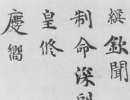 繅欽聞
制命深
皇修
慶嚮